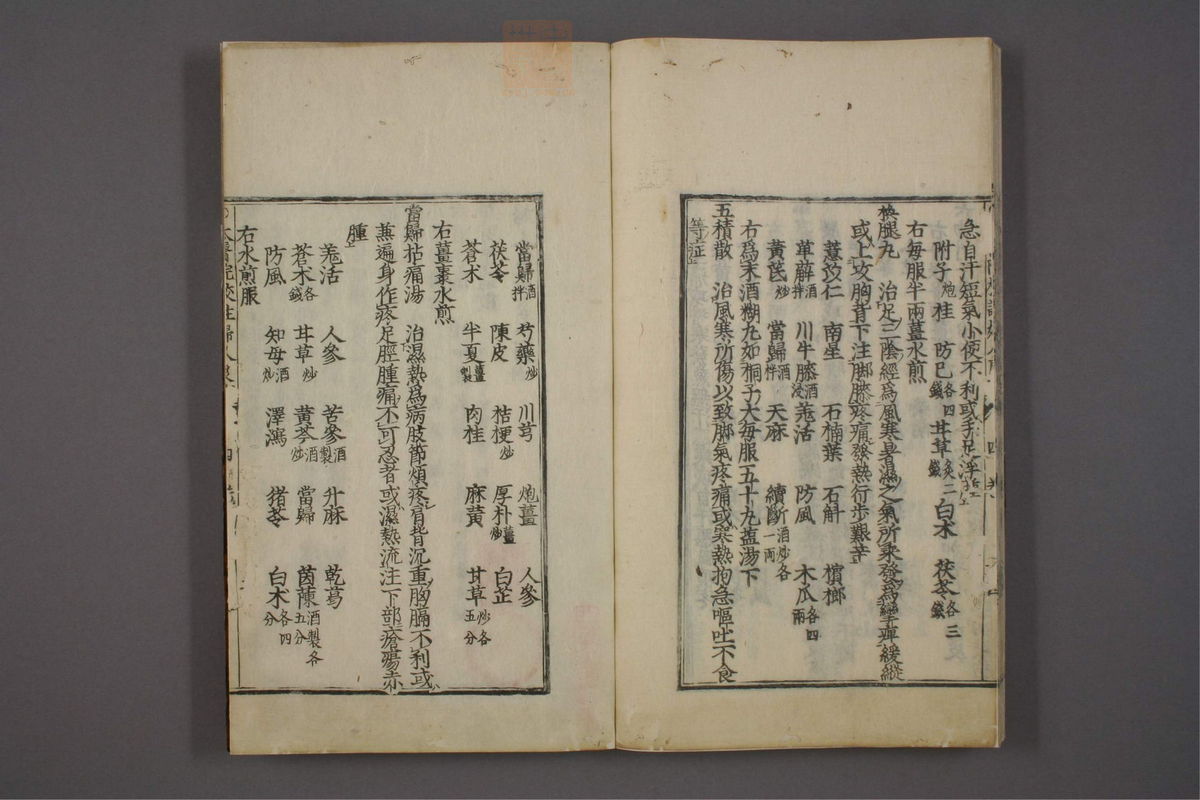 急自汗短氣小便不利或手足浮
附子炮 桂 防已各四錢 甘草炙二錢 白朮 茯苓各三錢
右每服半兩薑水煎
換腿丸 治足三陰經爲風寒暑濕之氣所乘發爲攣痺緩縱
或上攻胸背下注脚膝疼痛發熱行步艱辛
薏苡仁 南星 石楠葉 石斛 檳榔
萆薢酒拌 川牛膝酒浸 羗活 防風 木瓜各四兩
黃芪炒 當歸酒拌 天麻 續斷酒炒各一兩
右爲末酒糊丸如桐子大每服五十丸塩湯下
五積散 治風寒所傷以致脚氣疼痛或寒熱拘急嘔吐不食
等症
當歸酒拌 芍藥炒 川芎 炮薑 人參
茯苓 陳皮 桔梗炒 厚朴薑炒 白芷
蒼朮 半夏薑製 肉桂 麻黃 甘草炒各五分
右薑棗水煎
當歸拈痛湯 治濕熱爲病肢節煩疼肩背沉重胸膈不利或
蒸遍身作疼足脛腫痛不可忍者或濕熱流注下部瘡瘍赤
腫
羗活 人參 苦參酒製 升麻 乾葛
蒼朮各錢 甘草炒 黃芩酒炒 當歸 茵蔯酒製各五分
防風 知母酒炒 澤瀉 猪苓 白朮各四分
右水煎服